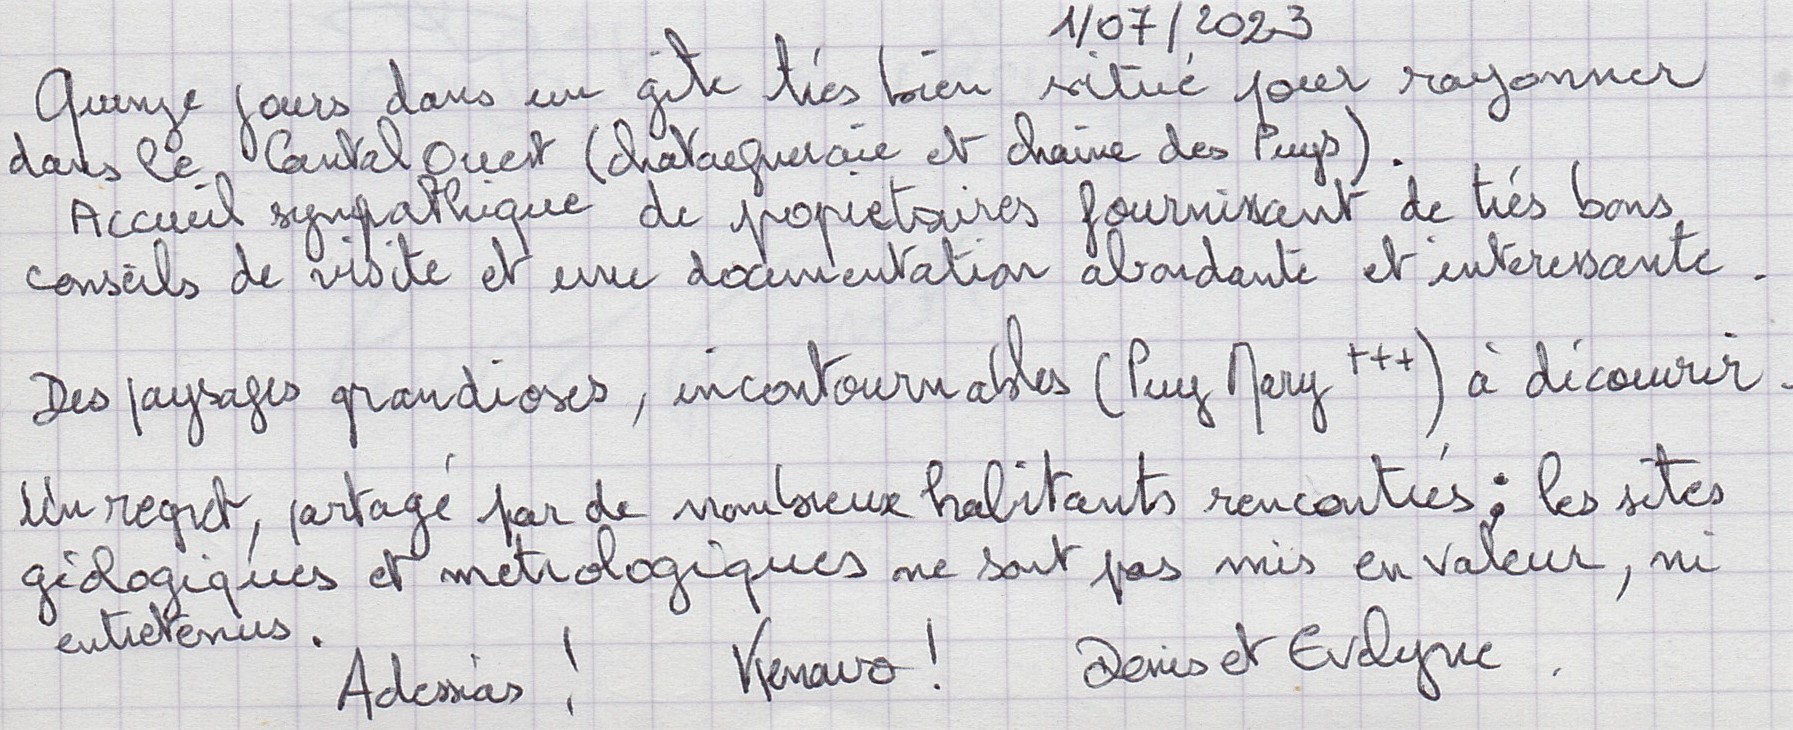 1/07/2023
Quinze jours dans un gîte très bien situé pour rayonner
dans le Cantal Ouest (chataigneraie et chaine des Puys).
Accueil sympathique de propietaires fournissant de très bons
conseils de visite et une documentation abondante et interessante.
Des paysages grandioses, incontournables (Puy Mary +++) à découvrir.
Un regret, partagé par de nombreux habitants rencontrés : les sites
géologiques et métrologiques ne sont pas mis en valeur, ni
entretenus.
Adessias ! Kenavo ! Denis et Evelyne.